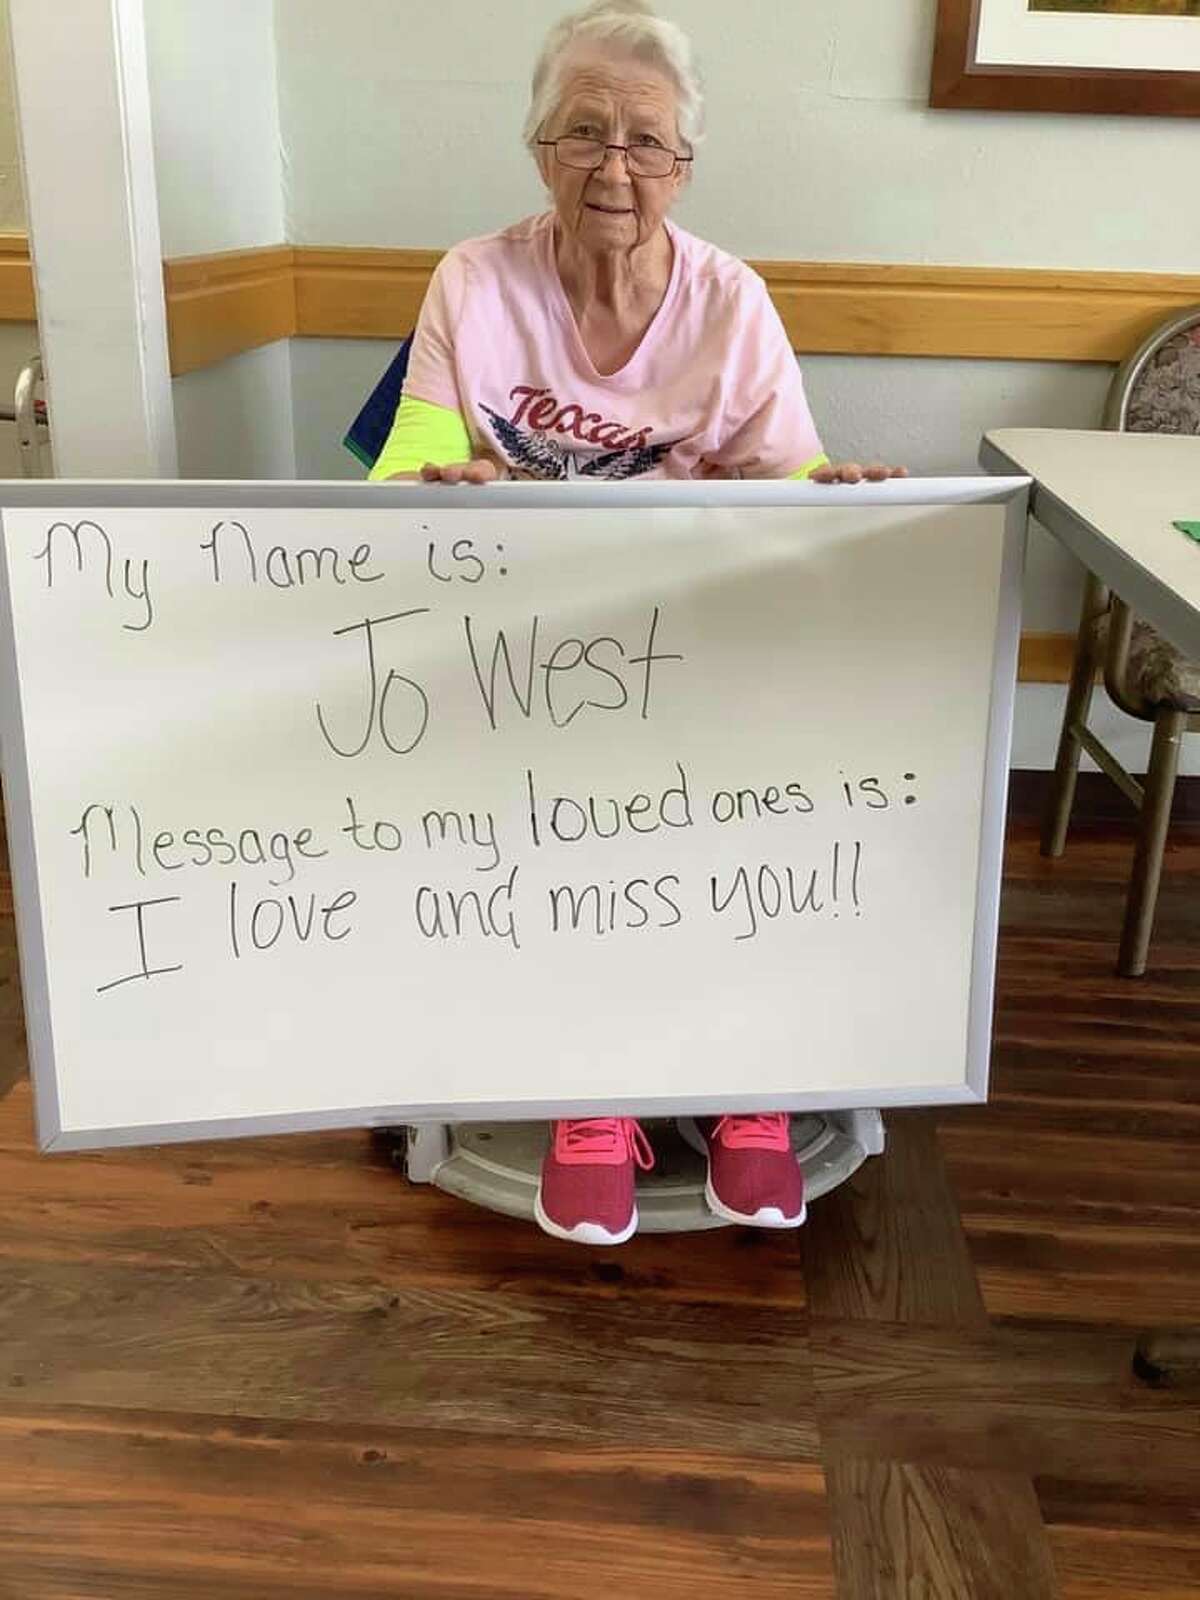 Texas
My Name is:
Jo West
Message to my loved ones is:
I love and miss you!!